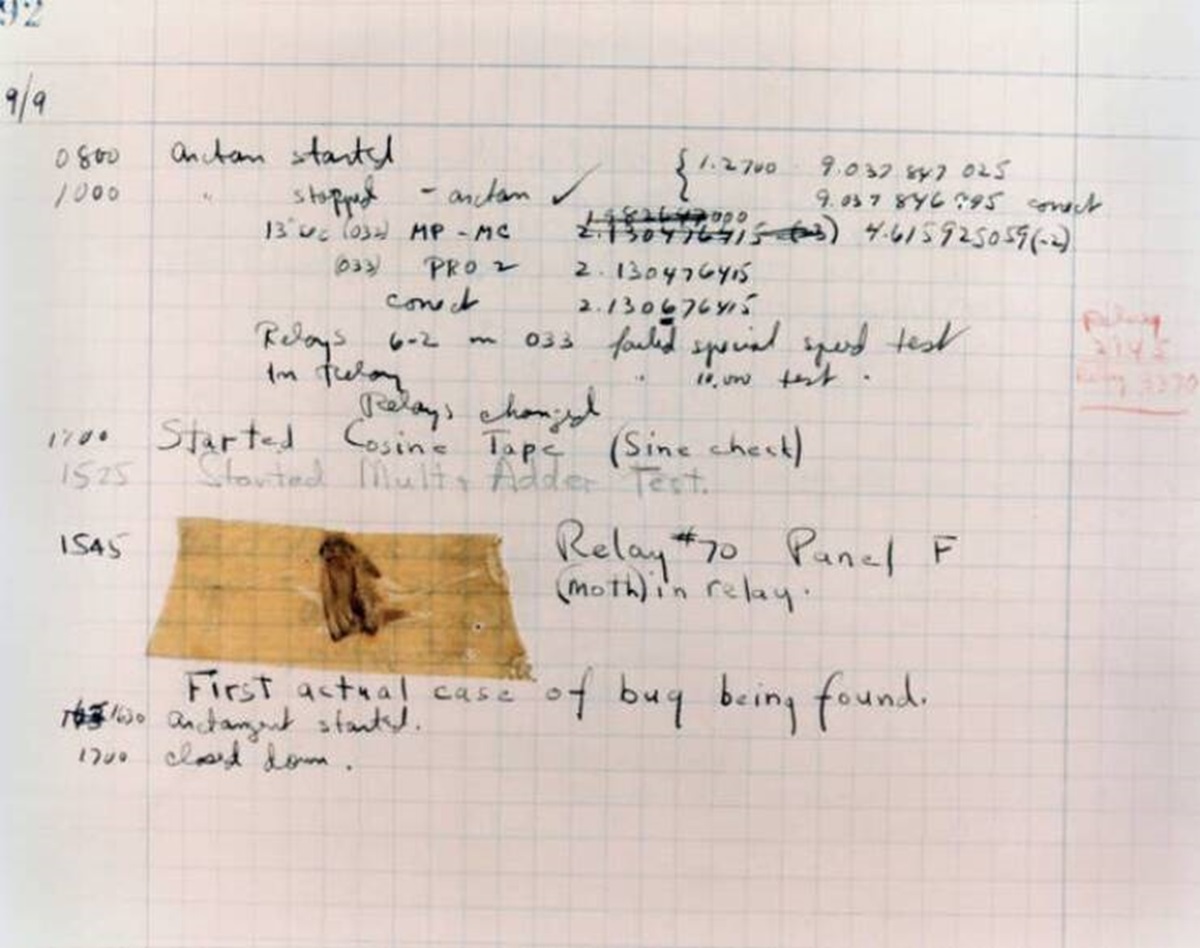 92
9/9
0800 arctan started { 1.2700 9.037 847 025
1000 " stopped - arctan ✓ 9.037 846 795 correct
13"uc (032) MP - MC 2.130476415 (-3) 4.615925059(-2)
(033) PRO 2 2.130476415
correct 2.130676415
Relays 6-2 in 033 failed special speed test
In Relay " 10,000 test .
Relays changed
1700 Started Cosine Tape (Sine check)
1525 Started Mult + Adder Test.
1545 Relay #70 Panel F
(moth) in relay.
First actual case of bug being found.
1630 arctangent started.
1700 closed down .
Relay
2145
Relay 3370